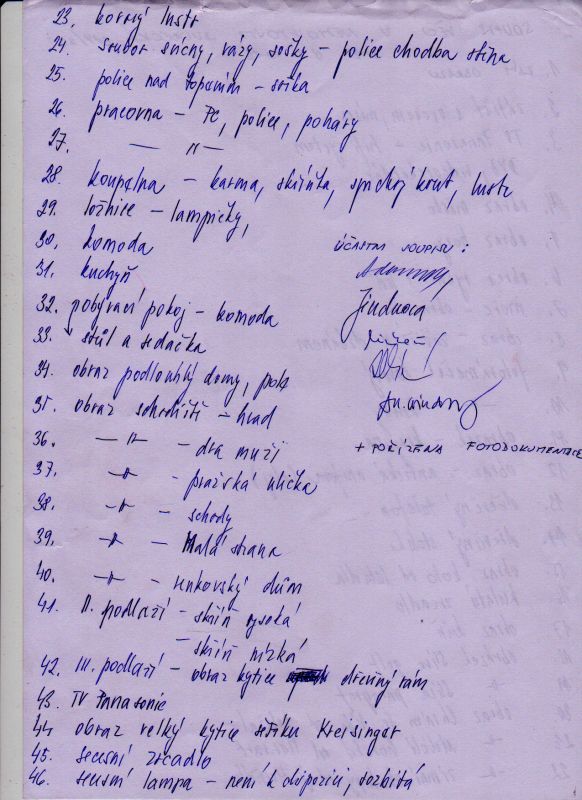 23. kovový lustr
24. soubor svícny, vázy, sošky - police chodba stěna
25. police nad topením - soška
26. pracovna - PC, police, poháry
27. — 〃 —
28. koupelna - karma, skříňka, sprchový kout, lustr
29. ložnice - lampičky,
30. komoda
ÚČASTNI SOUPISU:
31. kuchyň
32. pobývací pokoj - komoda
33. stůl a sedačka
34. obraz podlouhlý domy,
35. obraz schodiště - hrad
36. — 〃 — - dva muži
+ POŘÍZENA FOTODOKUMENTACE
37. — 〃 — - pražská ulička
38. — 〃 — - schody
39. — 〃 — - Malá strana
40. — 〃 — - venkovský dům
41. II. podlaží - skříň vysoká
- skříň nízká
42. III. podlaží - obraz kytice dřevěný rám
43. TV Panasonic
44 obraz velký kytice šeříku Kreisinger
45. secesní zrcadlo
46. secesní lampa - není k dispozici, rozbitá